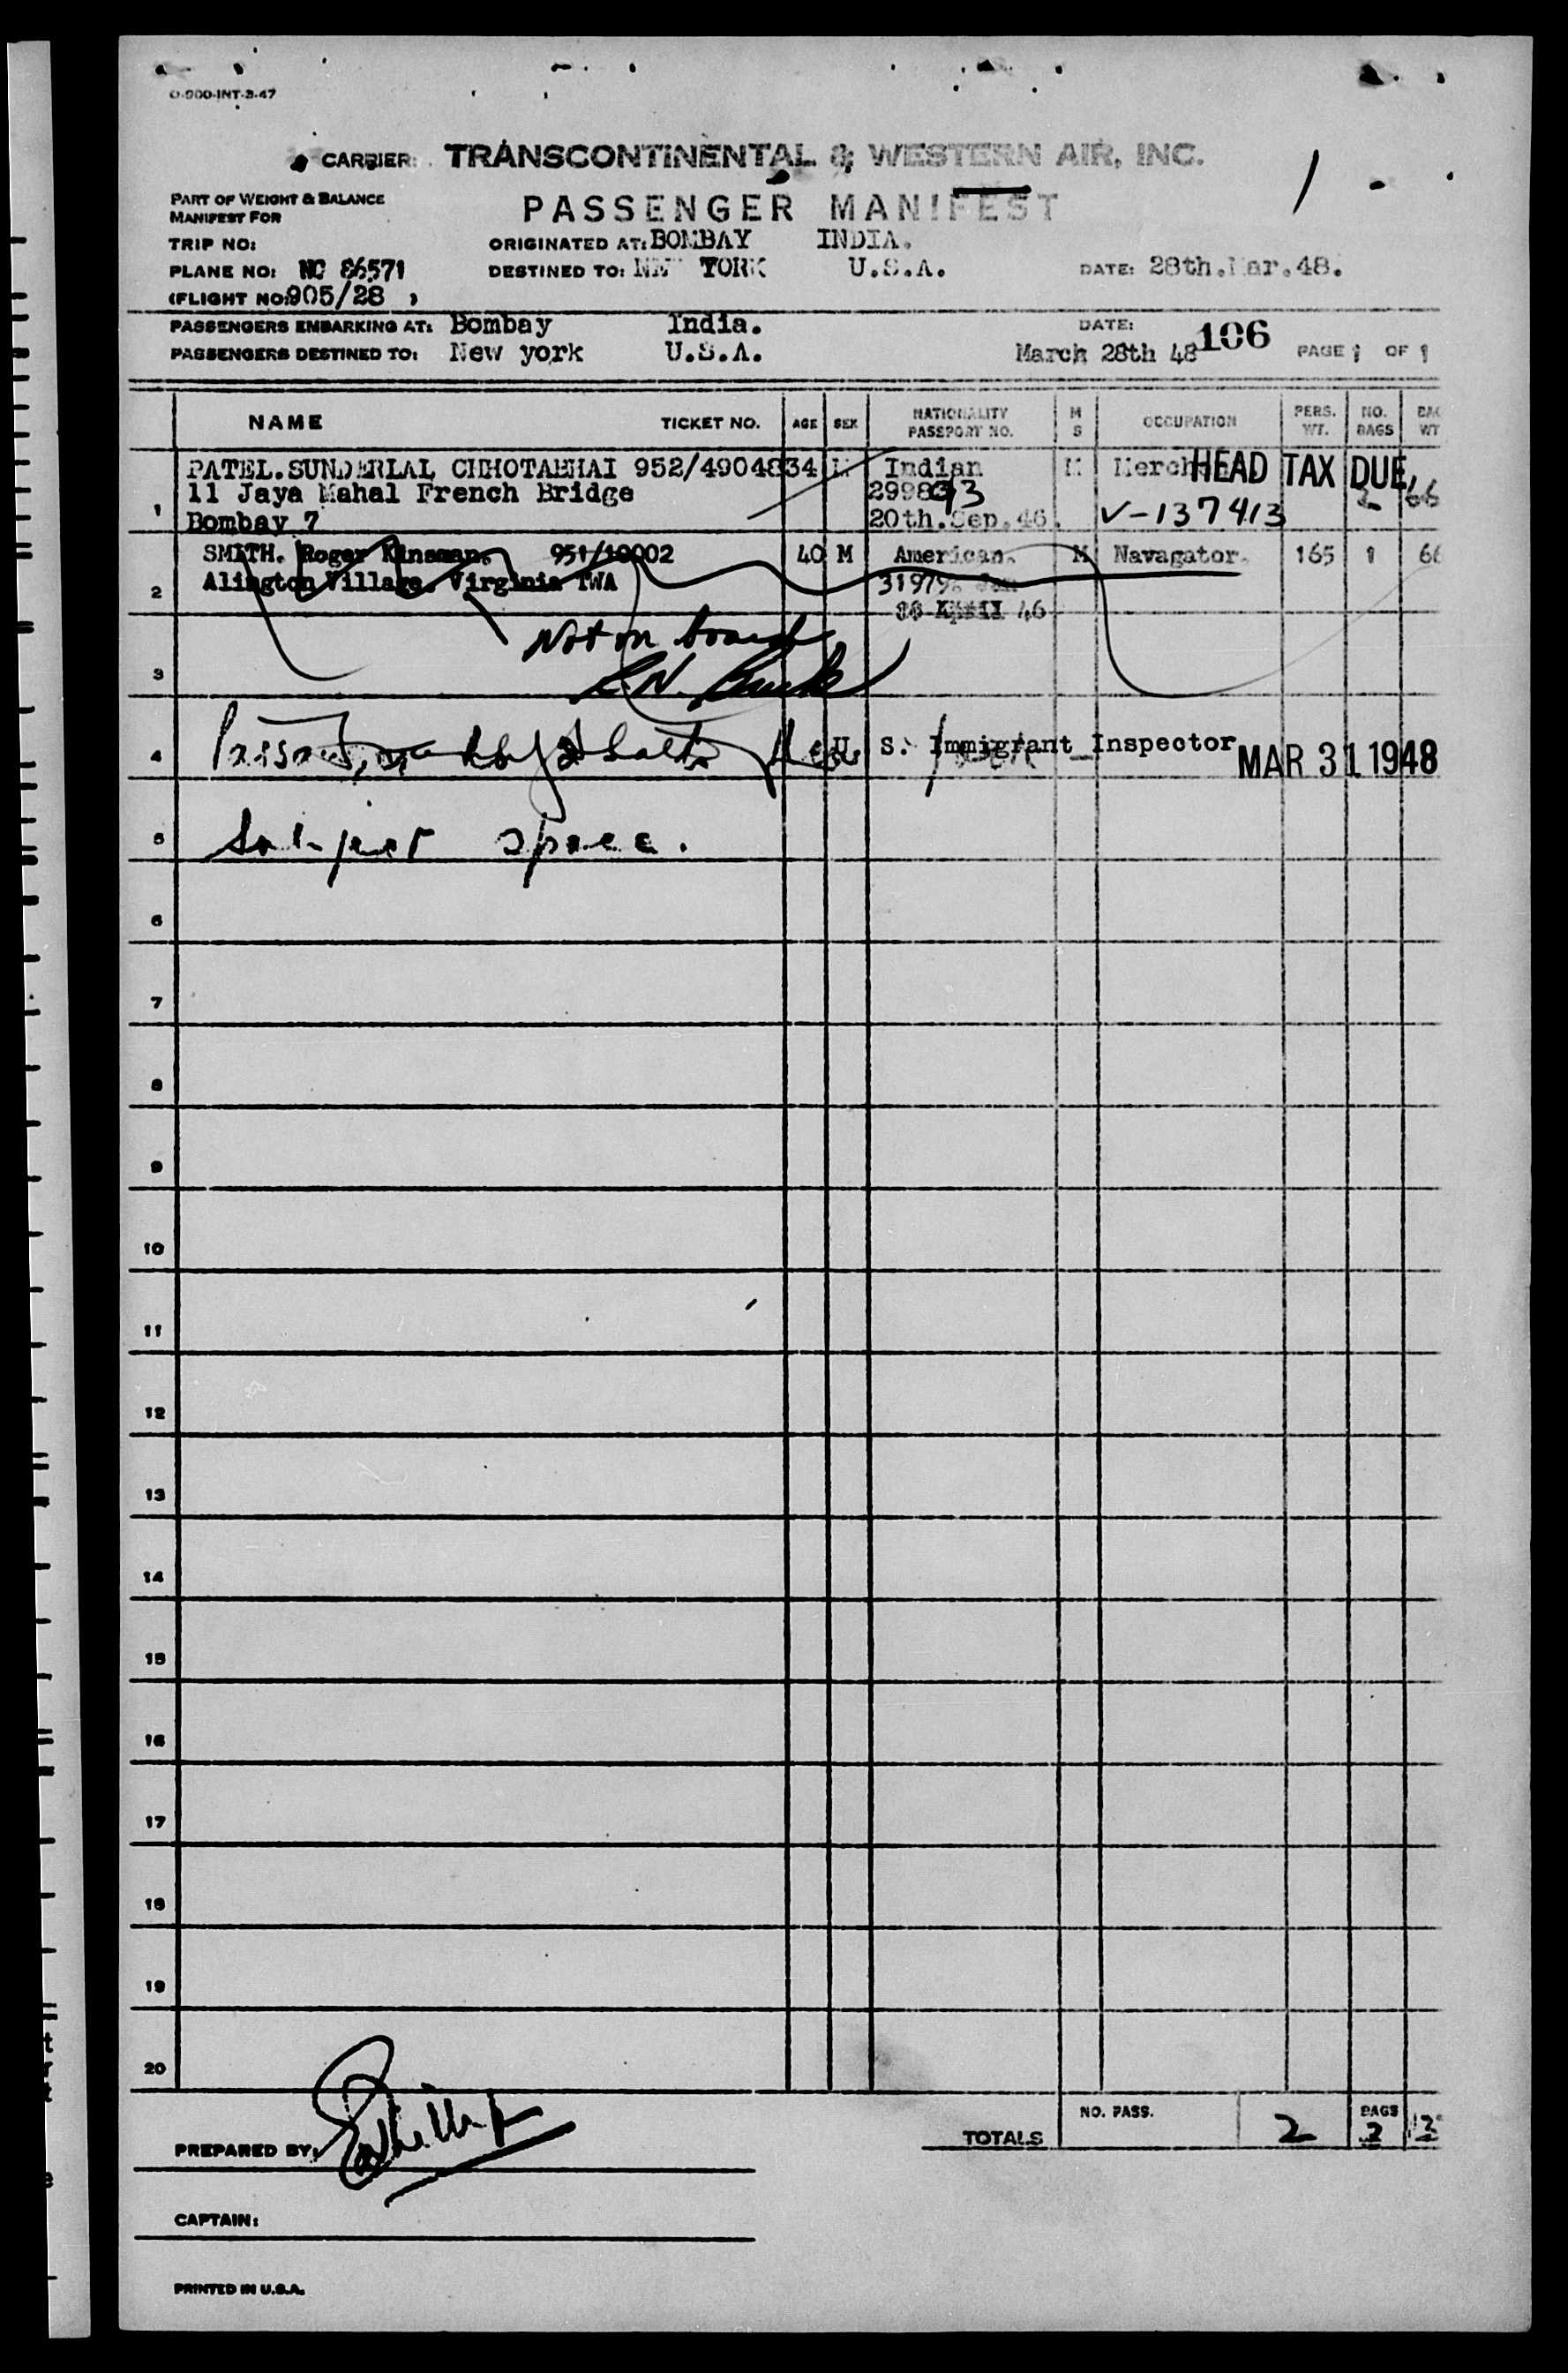 O-900-INT-3-47
CARRIER: TRANSCONTINENTAL & WESTERN AIR, INC.
PART OF WEIGHT & BALANCE
MANIFEST FOR
PASSENGER MANIFEST
TRIP NO: ORIGINATED AT: BOMBAY INDIA.
PLANE NO: NC 86571 DESTINED TO: NEW YORK U.S.A. DATE: 28th.Mar.48.
(FLIGHT NO: 905/28 )
PASSENGERS EMBARKING AT: Bombay India. DATE:
PASSENGERS DESTINED TO: New york U.S.A. March 28th 48 106 PAGE 1 OF 1
NAME TICKET NO. AGE SEX NATIONALITY PASSPORT NO. M S OCCUPATION PERS. WT. NO. BAGS BAG WT
1 PATEL.SUNDERLAL CHHOTABHAI 952/4904834 M Indian M Merch HEAD TAX DUE,
11 Jaya Mahal French Bridge 299893 2 66
Bombay 7 20th.Sep.46. V-137413
2 SMITH. Roger Kinsman. 951/10002 40 M American. M Navagator. 165 1 66
Alington Village. Virginia TWA 31979
46
Not on board
3
4 U. S. Immigrant Inspector MAR 31 1948
5 Subject space.
6
7
8
9
10
11
12
13
14
15
16
17
18
19
20
NO. PASS. BAGS
TOTALS 2 2
PREPARED BY:
CAPTAIN:
PRINTED IN U.S.A.